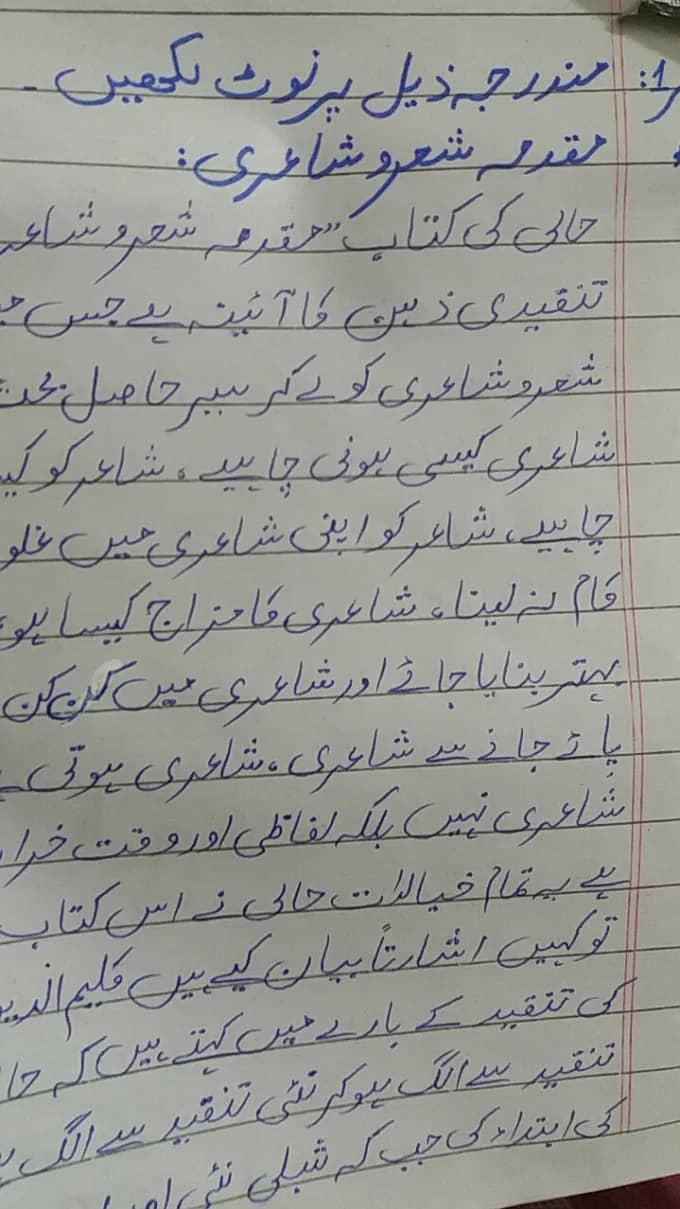 1: مندرجہ ذیل پر نوٹ لکھیں ۔
مقدمہ شعر و شاعری :
حالی کی کتاب "مقدمہ شعر و شاعر
تنقیدی ذہن کا آئینہ ہے جس
شعر و شاعری کو لے کر سیر حاصل بحث
شاعری کیسی ہونی چاہیے ، شاعر کو
چاہیے، شاعر کو اپنی شاعری میں غلو
کام نہ لینا، شاعری کا مزاج کیسا ہو
بہتر بنایا جائے اور شاعری میں کن کن
پائے جانے سے شاعری ، شاعری ہوتی
شاعری نہیں بلکہ لفاظی اور وقت
ہے یہ تمام خیالات حالی نے اس کتاب
تو کہیں اشارتاً بیان کیے ہیں کلیم الدین
کی تنقید کے بارے میں کہتے ہیں کہ
تنقید سے الگ ہو کر نئی تنقید سے الگ
کی ابتداء کی جب کہ شبلی نئی